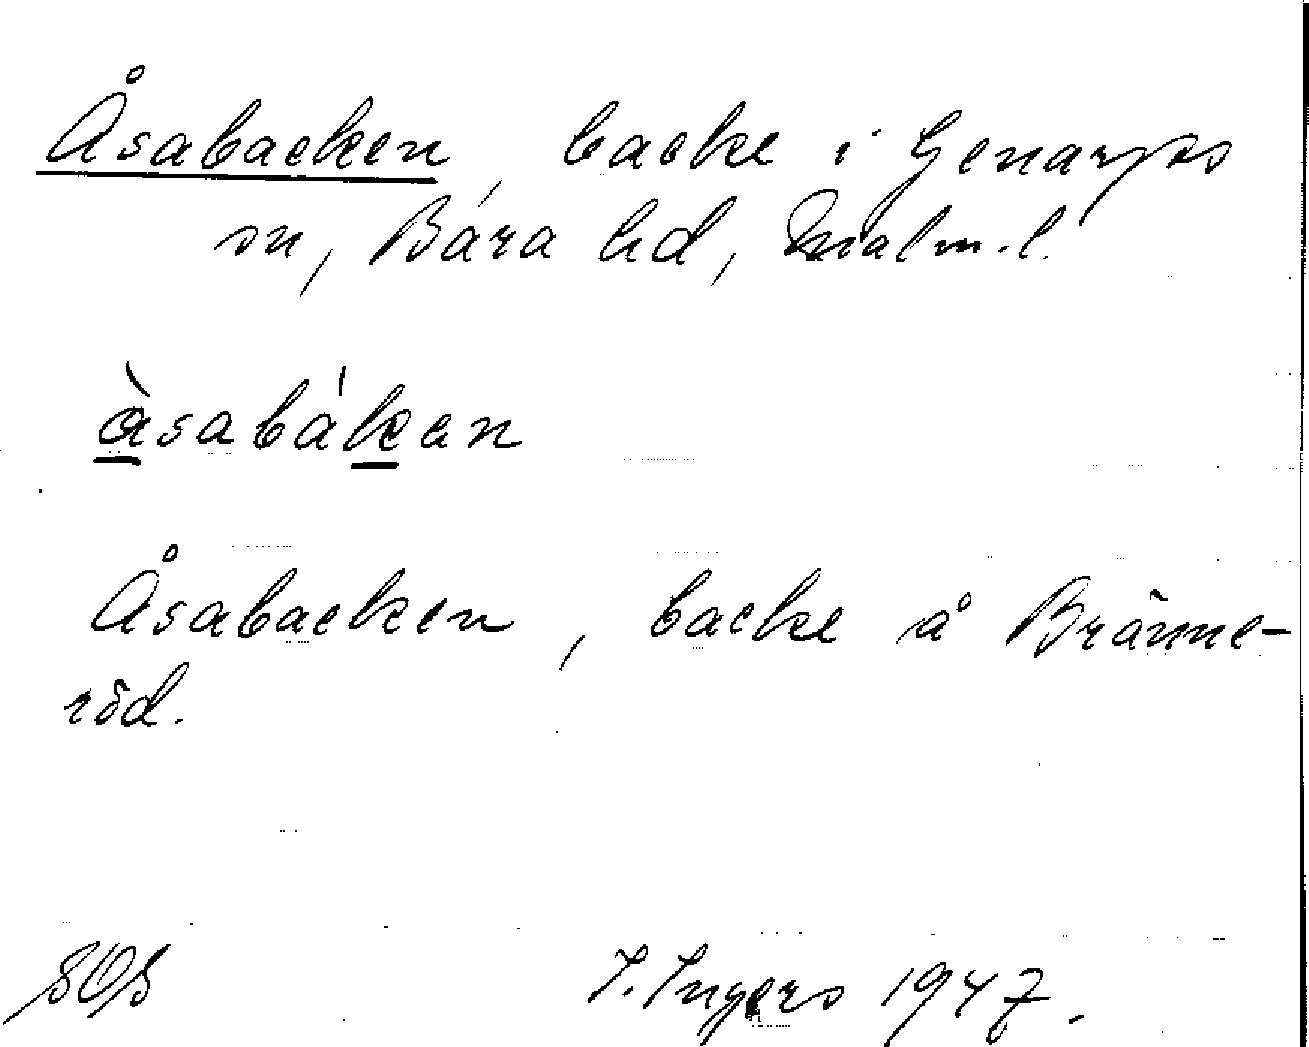 Åsabacken, backe i Genarps
sn, Bara hd, Malm. l.
àsabákan
Åsabacken, backe å Bränne-
röd.
SOS I. Ingers 1947.